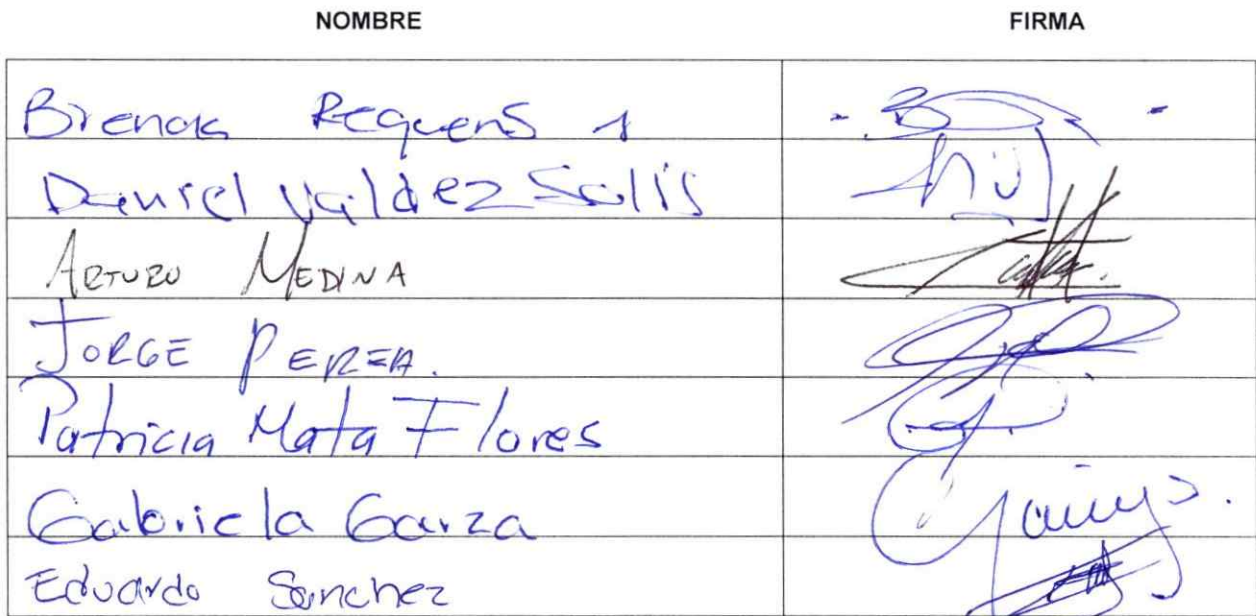 NOMBRE FIRMA
Brenda Requens
Daniel Valdez Solis
ARTURO MEDINA
JORGE PEREA.
Patricia Mata Flores
Gabriela Garza
Eduardo Sanchez